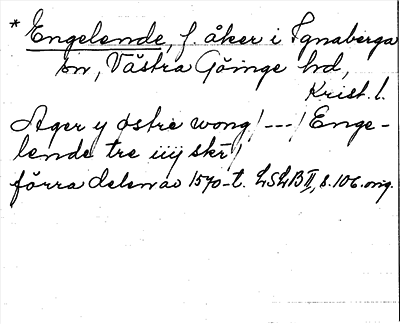 * Engelende, f. åker i Ignaberga
sn, Västra Göinge hd,
Krist. l.
Ager y østre wong/---/Enge-
lende tre iiij skr̄/
förra delen av 1570-t. LSLB II, s. 106. orig.